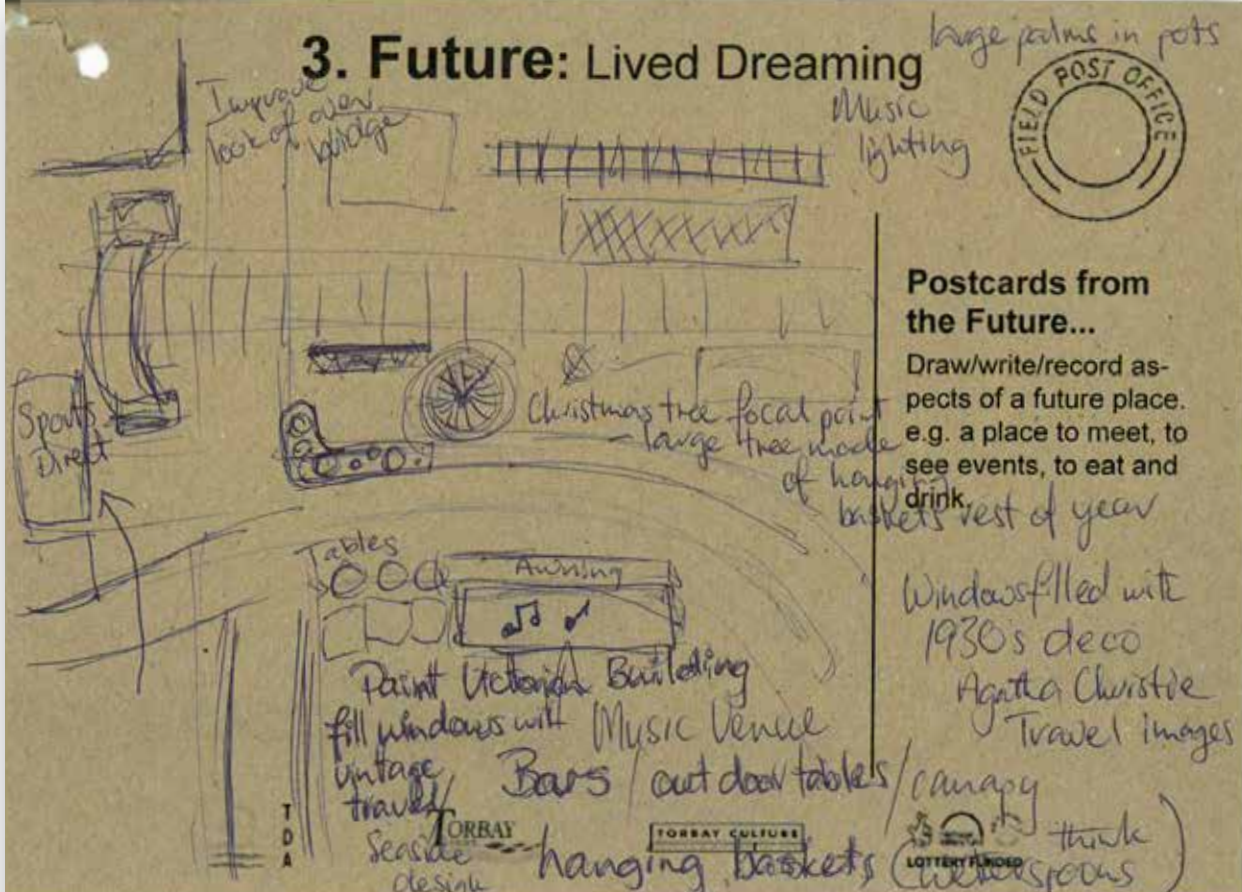 large palms in pots
3. Future: Lived Dreaming
FIELD POST OFFICE
Improve
look of over
bridge
Music
lighting
Postcards from
the Future...
Draw/write/record as-
pects of a future place.
e.g. a place to meet, to
see events, to eat and
drink.
Sports
Direct
Christmas tree focal point
- large tree made
of hanging
baskets rest of year
Tables
Awning
Windows filled with
1930s deco
Agatha Christie
Travel images
Paint Victorian Building
fill windows with
vintage
travel/
Seaside
design
Music Venue
Bars / outdoor tables / canapy
hanging baskets (think
wetherspoons)
TDA
TORBAY
TORBAY CULTURE
LOTTERY FUNDED